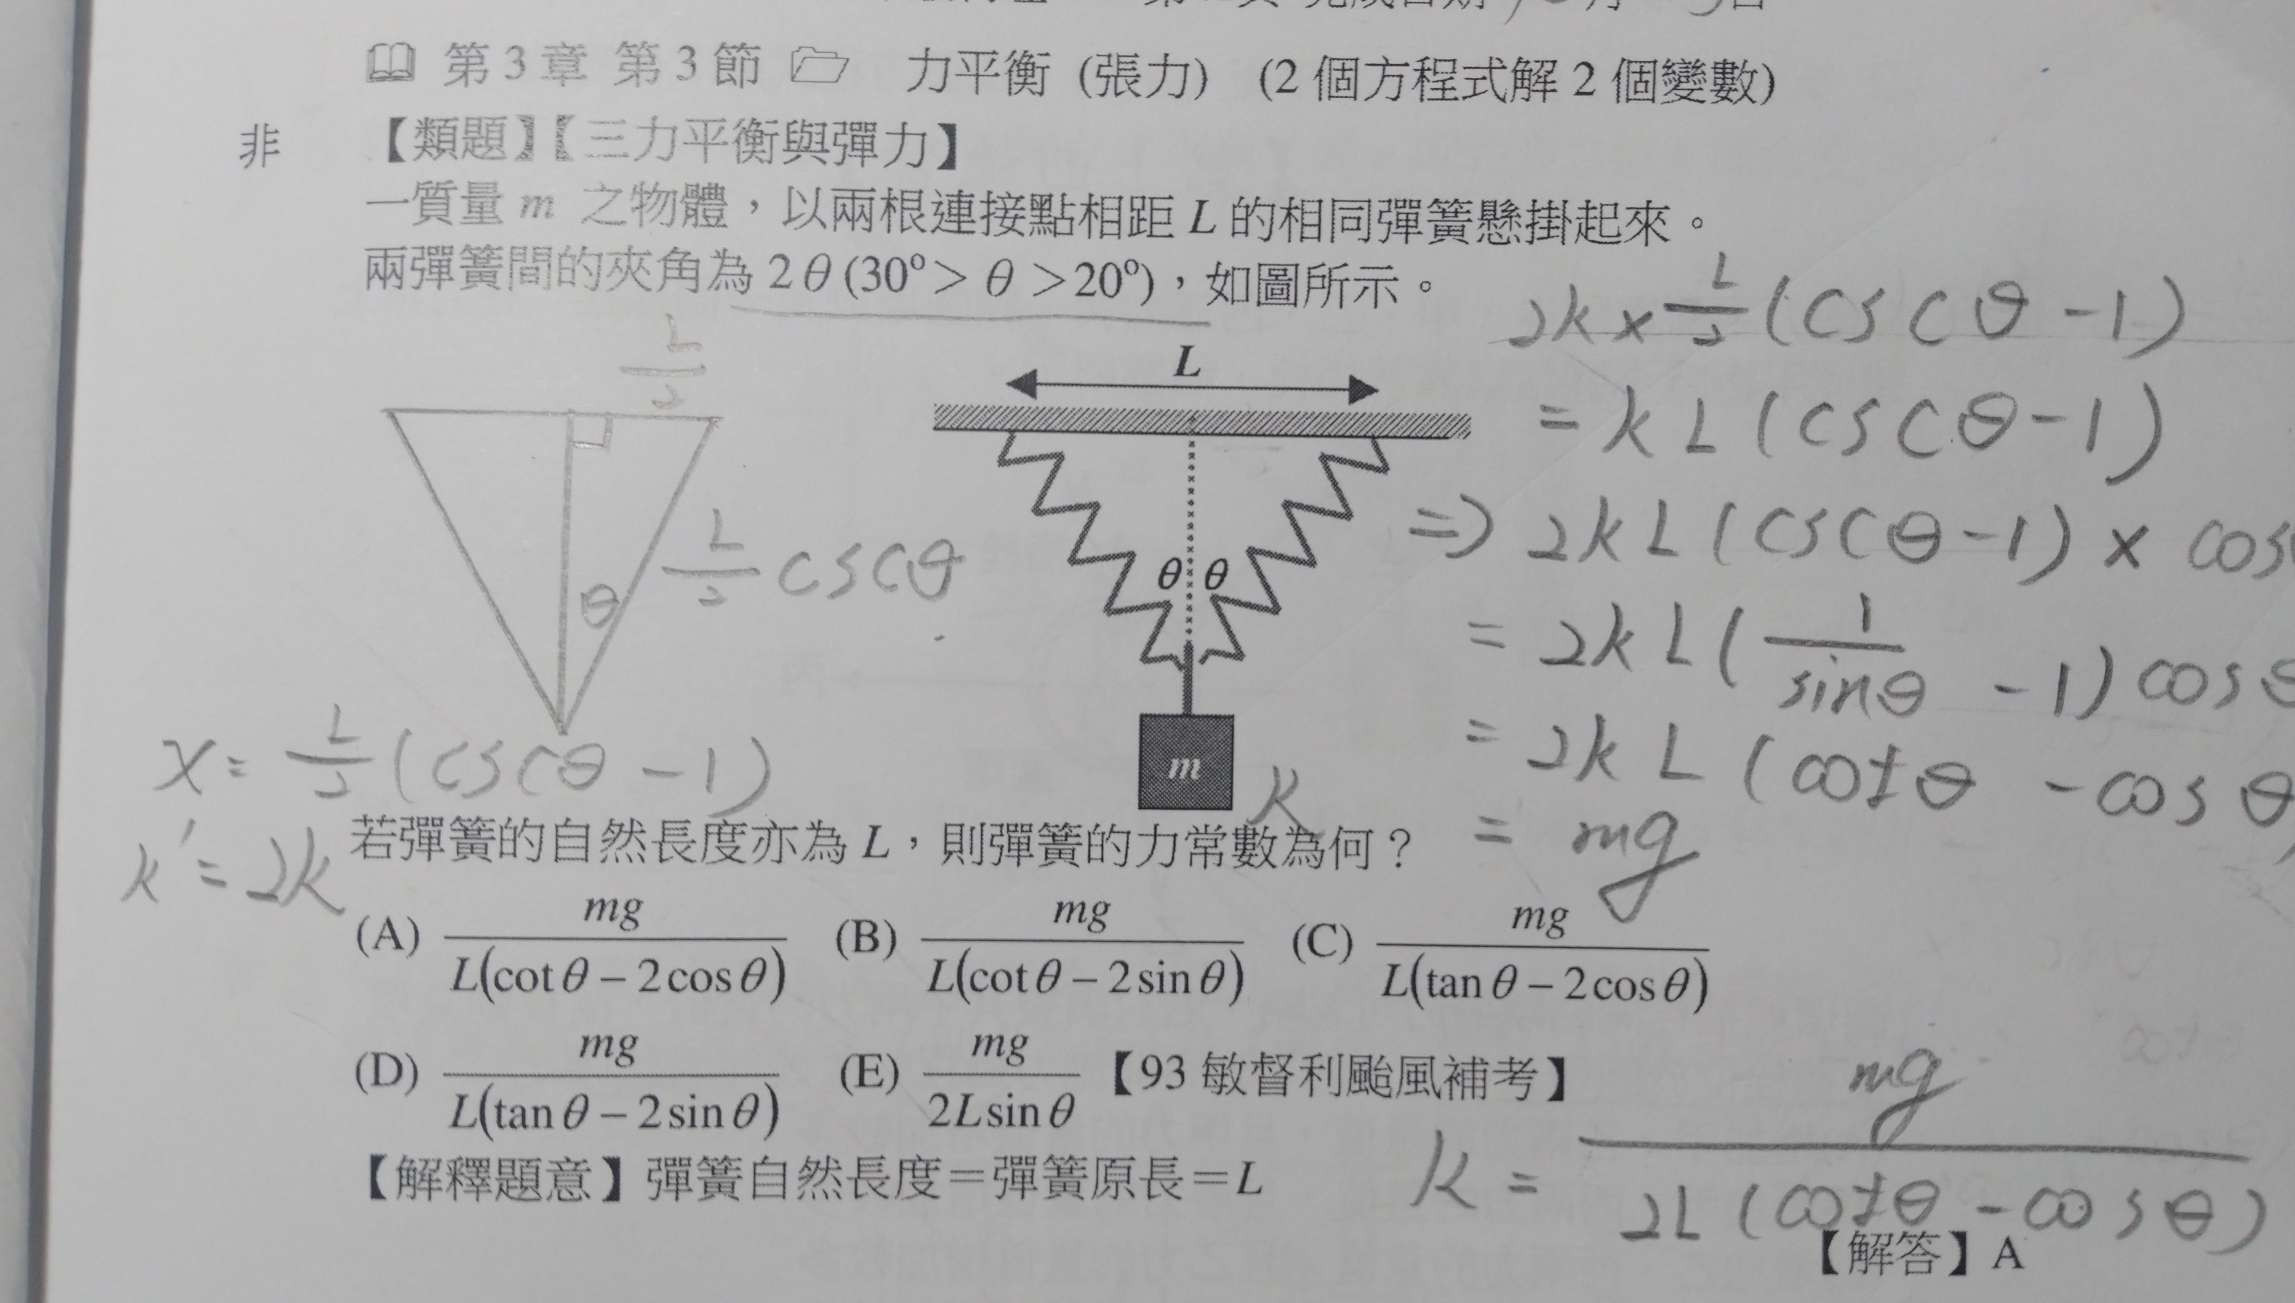 第3章 第3節 力平衡 (張力) (2個方程式解2個變數)
非 【類題】【三力平衡與彈力】
一質量 m 之物體，以兩根連接點相距 L 的相同彈簧懸掛起來。
兩彈簧間的夾角為 2θ (30°> θ >20°)，如圖所示。
L/2
L
θ
L/2 cscθ
θ θ
m
x = L/2 (cscθ - 1)
k' = 2k
K
2k × L/2 (cscθ - 1)
= kL (cscθ - 1)
⇒ 2kL (cscθ - 1) × cos
= 2kL (1/sinθ - 1) cosθ
= 2kL (cotθ - cosθ)
= mg
若彈簧的自然長度亦為 L，則彈簧的力常數為何？
(A) mg/L(cotθ – 2cosθ) (B) mg/L(cotθ – 2sinθ) (C) mg/L(tanθ – 2cosθ)
(D) mg/L(tanθ – 2sinθ) (E) mg/2Lsinθ 【93 敏督利颱風補考】
【解釋題意】彈簧自然長度＝彈簧原長＝L
k = mg/2L (cotθ - cosθ)
【解答】A